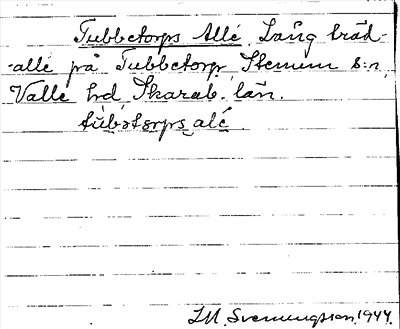 Tubbetorps Allé. Lång träd-
-allé på Tubbetorp, Stenum s:n,
Valle hd, Skarab. län.
tùbətørps alé.
J.M. Svenungsson. 1944.